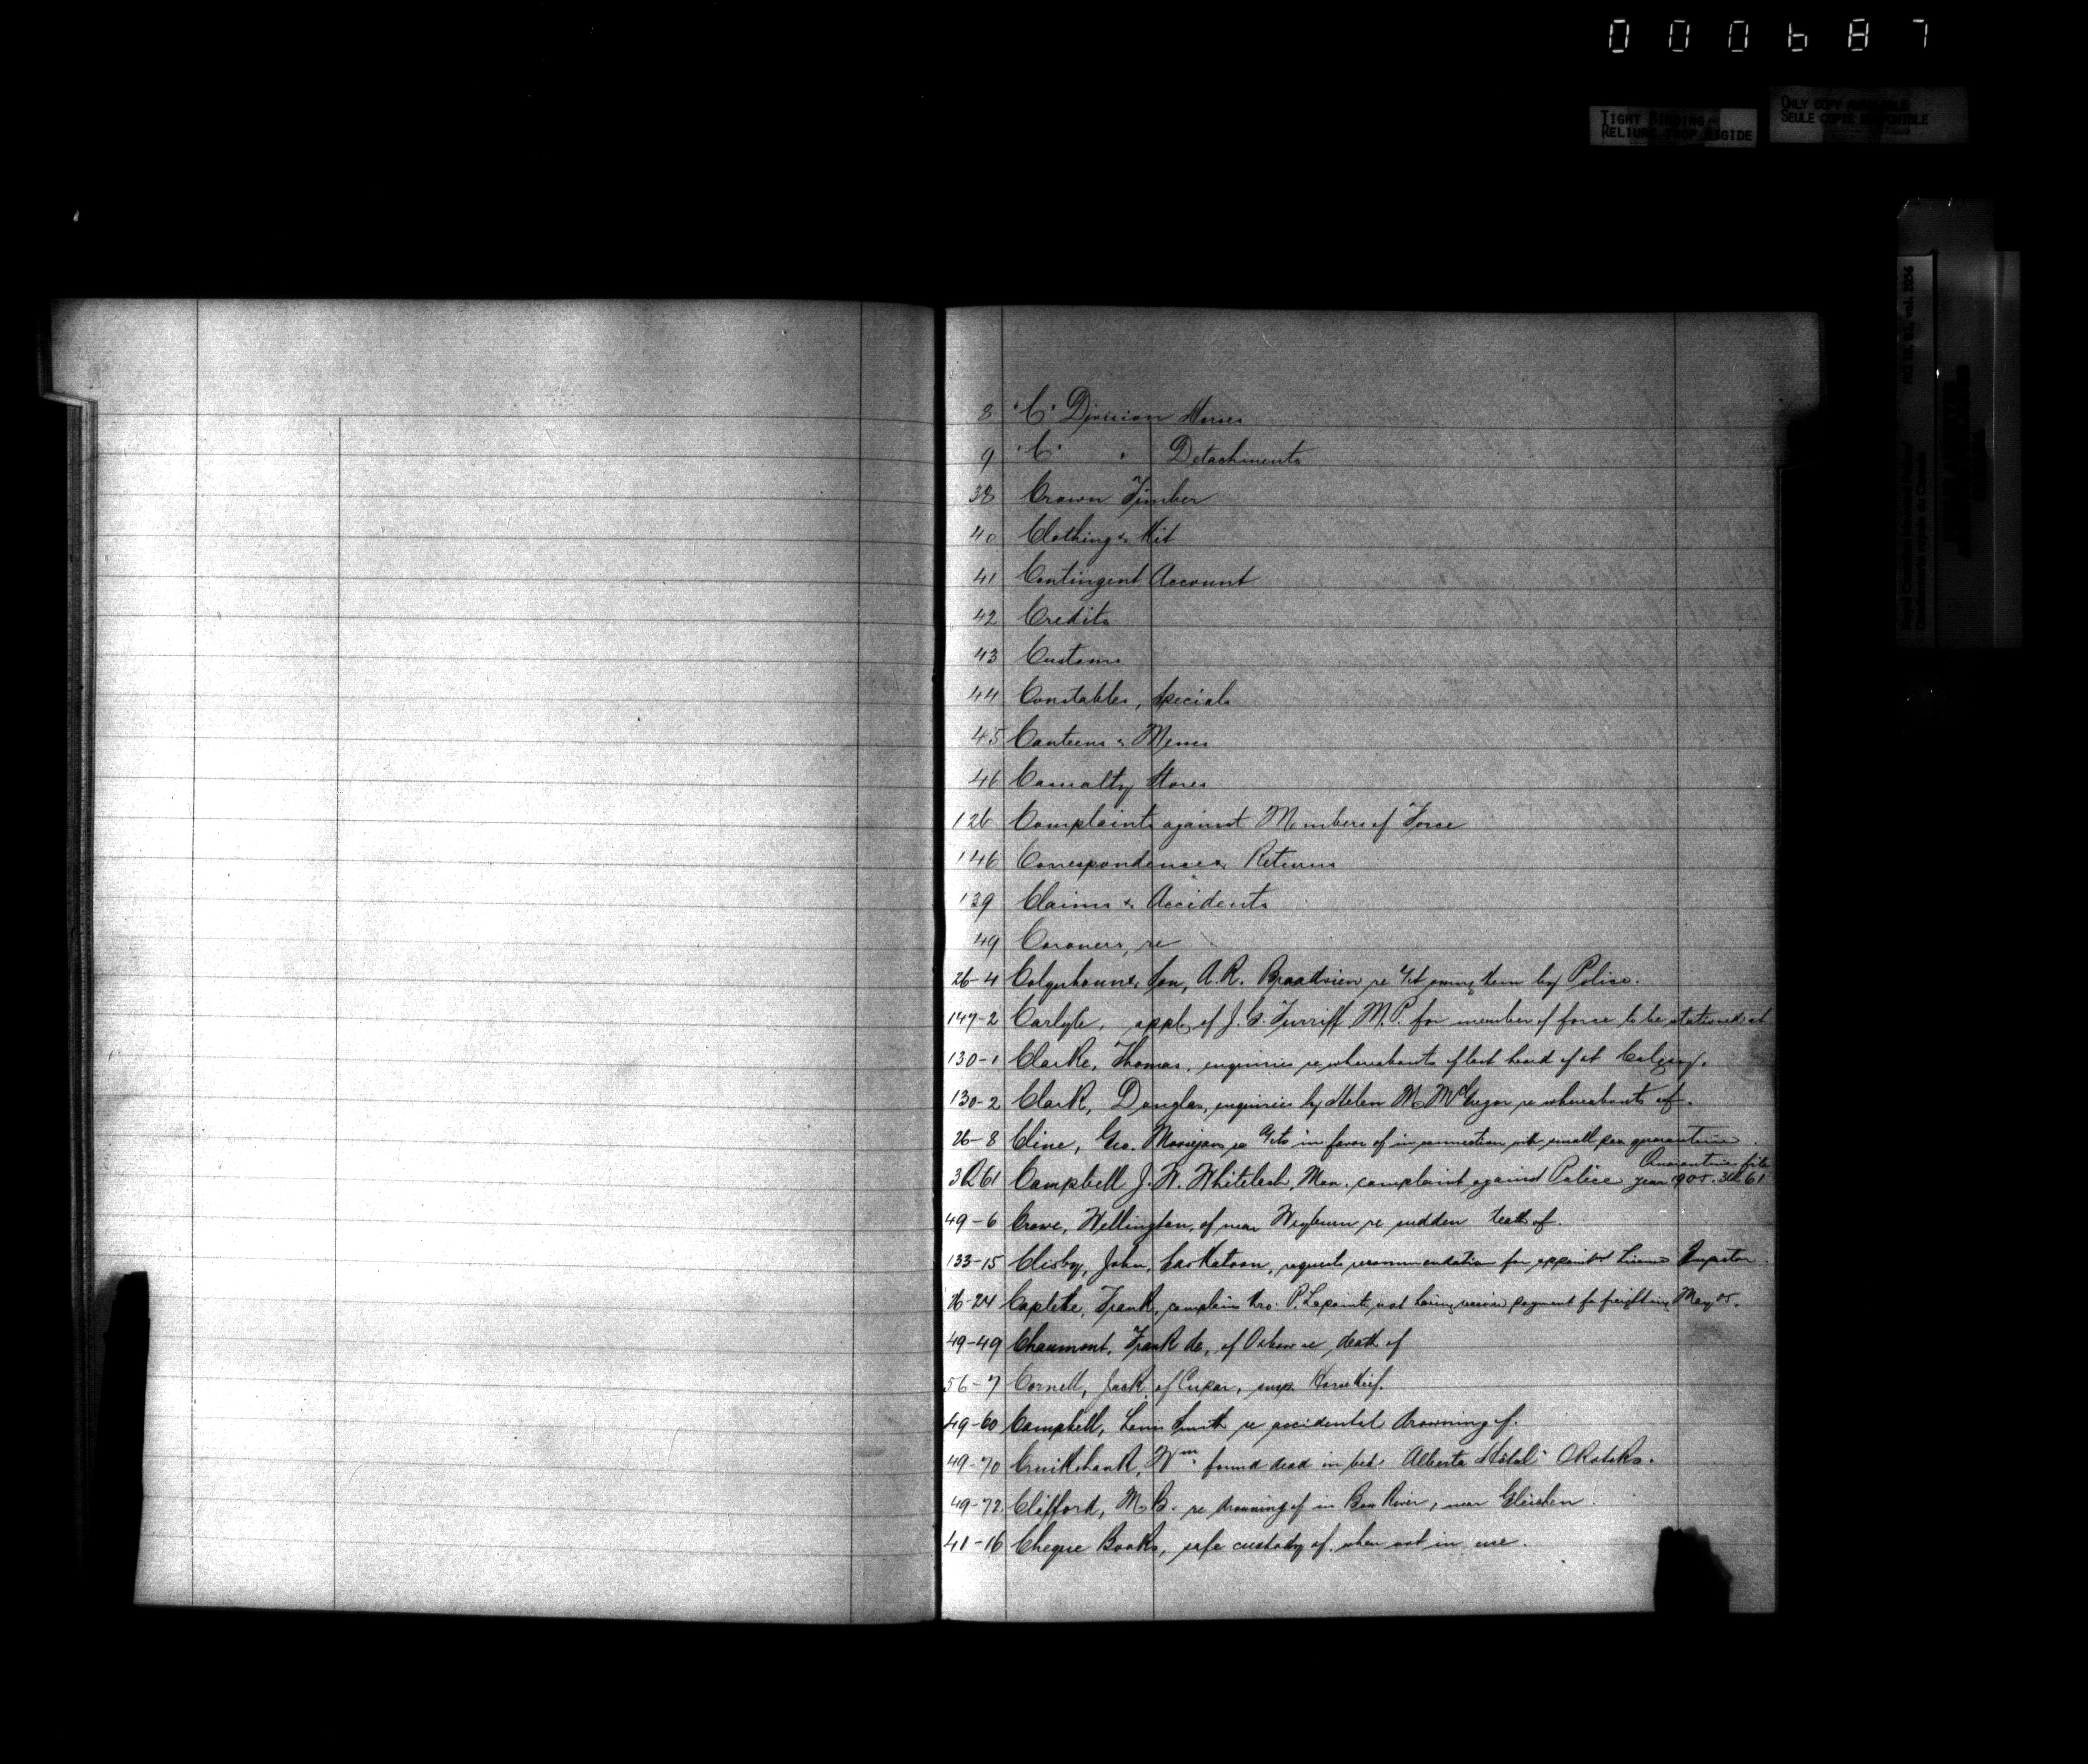 000687
TIGHT BINDING
RELIURE TROP RIGIDE
ONLY COPY AVAILABLE
SEULE COPIE DISPONIBLE
RG 18, vol. 2356
8 "C" Division Horses
9 "C" " Detachments
38 Crown Timber
40 Clothing & Kit
41 Contingent Account
42 Credits
43 Customs
44 Constables, Specials
45 Canteens & Messes
46 Casualty Stores
126 Complaints against Members of Force
146 Correspondence & Returns
139 Claims & Accidents
49 Coroners, re
26-4 Colquhoun & Son, A.R. Broadview re a/ct owing them by Police.
147-2 Carlyle, appl. of J.G. Turriff M.P. for member of force to be stationed at
130-1 Clarke, Thomas, enquiries re whereabouts of last heard of at Calgary.
130-2 Clark, Douglas, enquiries by Helen M. McGregor re whereabouts of.
26-8 Cline, Geo. re a/cts in favor of in connection with small pox quarantine.
Quarantine file
3Q61 Campbell J.W. Whitelash, Mon. complaint against Police year 1905. 3Q61
49-6 Crowe, Wellington, of near Weyburn re sudden death of.
133-15 Clisby, John, Saskatoon, requests recommendation for appoint License Inspector.
26-24 Frank, complains P. Lapointe, not having receive payment for freighting May 05.
49-49 Chaumont, Frank de, of Oxbow re death of
56-7 Cornell, Jack, of Cupar, susp. Horsethief.
49-60 Campbell, Smith re accidental drowning of.
49-70 Cruikshank, Wm. found dead in bed. "Alberta Hotel" Okotoks.
49-72 Clifford, M.B. re drowning of in Bow River, near Gleichen.
41-16 Cheque Books, safe custody of when not in use.